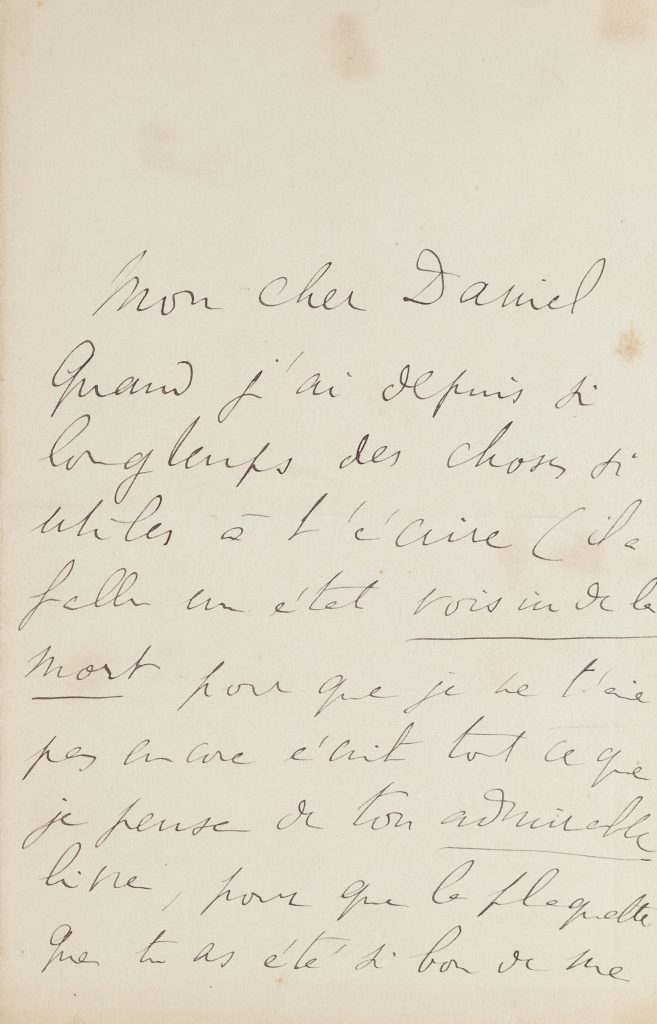 Mon cher Daniel
Quand j'ai depuis si
longtemps des choses si
utiles à t'écrire (il a
fallu un état voisin de la
mort pour que je ne t'aie
pas encore écrit tout ce que
je pense de ton admirable
livre, pour que la plaquette
que tu as été si bon de me